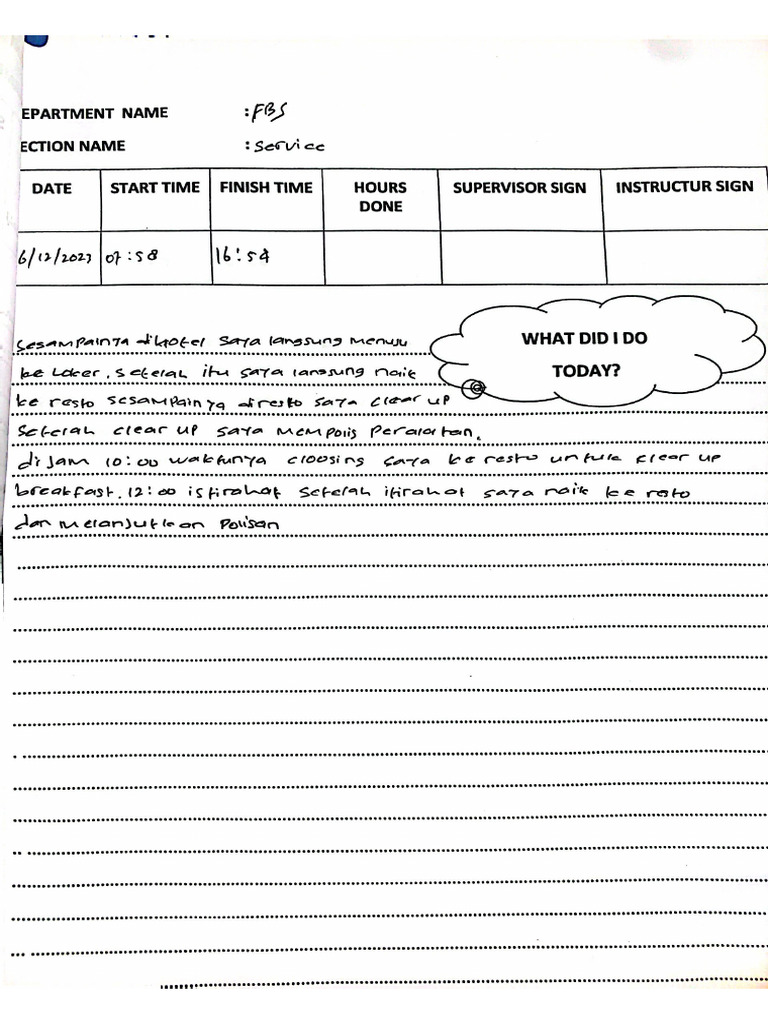 EPARTMENT NAME : FBS
ECTION NAME : Service
DATE START TIME FINISH TIME HOURS DONE SUPERVISOR SIGN INSTRUCTUR SIGN
6/12/2023 07:58 16:54
WHAT DID I DO
TODAY?
Sesampainya dihotel saya langsung menuju
ke loker. setelah itu saya langsung naik
ke resto sesampainya diresto saya clear up
setelah clear up saya mempolis peralatan.
di jam 10:00 waktunya cloosing saya ke resto untuk clear up
breakfast. 12:00 istirahat setelah itirahat saya naik ke resto
dan melanjutkan polisan